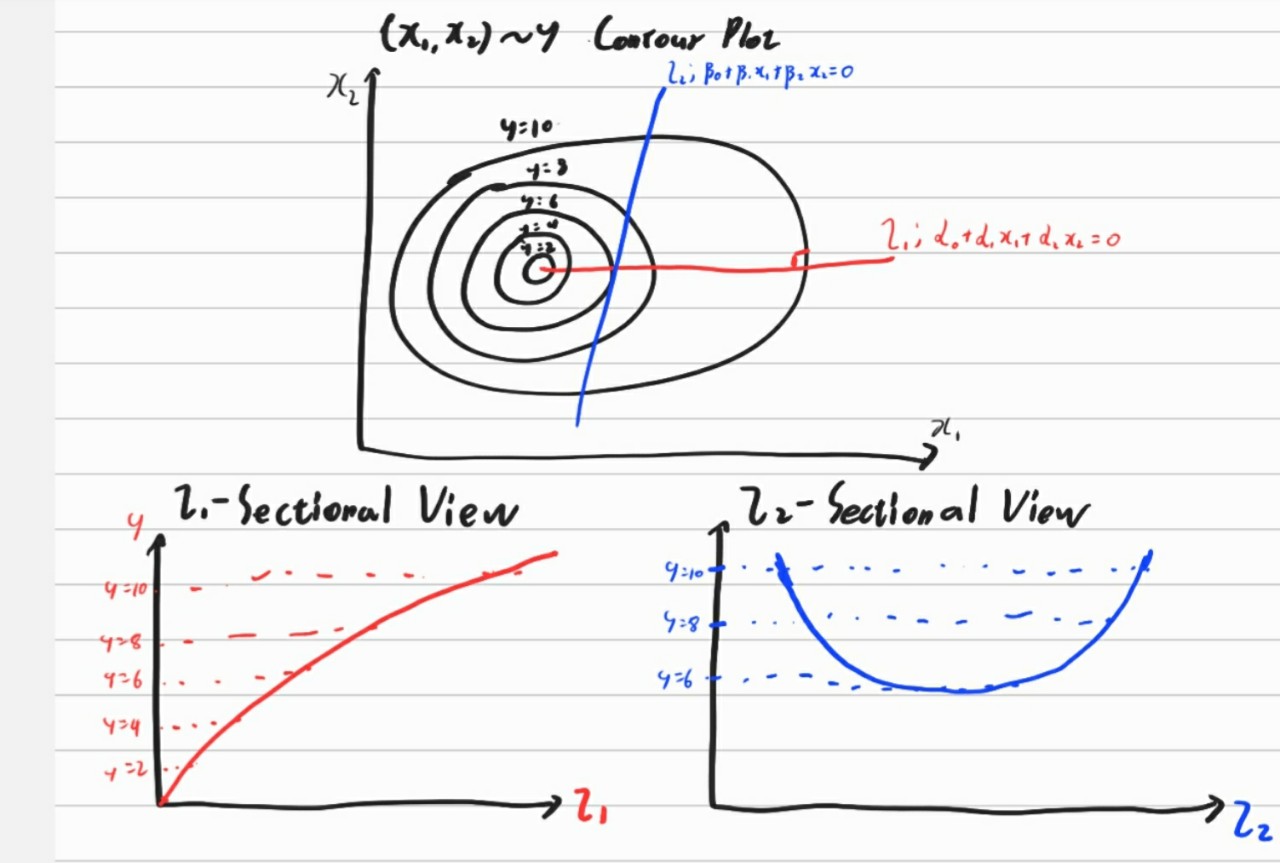 (x₁, x₂) ~ y Contour Plot
x₂
l₂; β₀+β₁x₁+β₂x₂=0
y=10
y=8
y=6
y=4
y=2
l₁; α₀+α₁x₁+α₂x₂=0
x₁
l₁-Sectional View
y
y=10
y=8
y=6
y=4
y=2
l₁
l₂-Sectional View
y=10
y=8
y=6
l₂